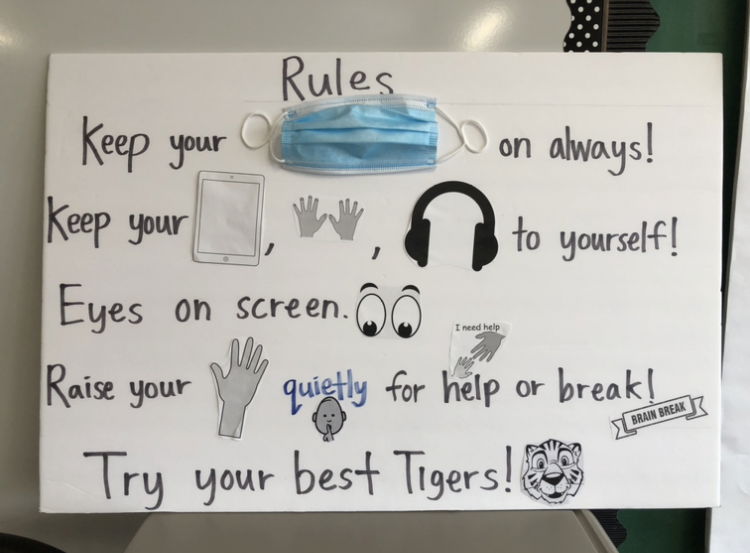 Rules
Keep your on always!
Keep your , , to yourself!
Eyes on screen.
I need help
Raise your quietly for help or break!
BRAIN BREAK
Try your best Tigers!